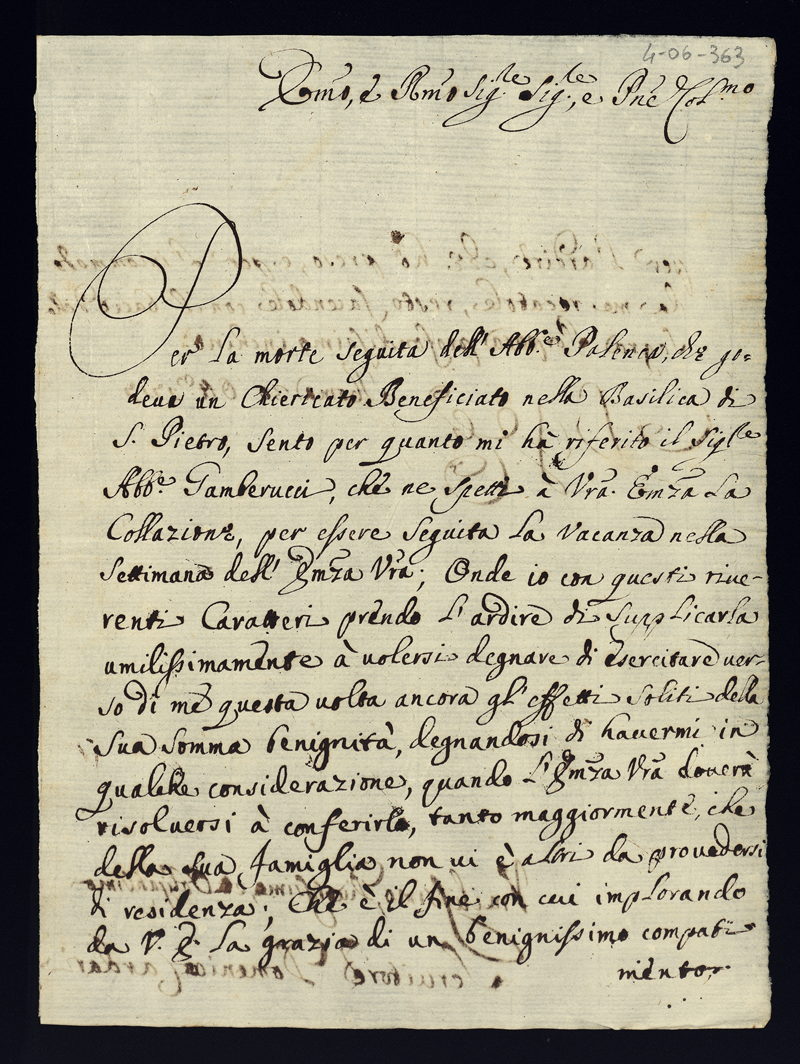 4-06-363
Emo, e Rmo Sig.re Sig.re, e Pne Col.mo
Per la morte seguita dell' Abb.e Palenca, che go-
deva un Chiericato Beneficiato nella Basilica di
S. Pietro, sento per quanto mi hà riferito il Sig.re
Abb.e Tamberucci, che ne spetti à Vra. Emza La
Collazione, per essere seguita la vacanza nella
Settimana dell' Emza Vra; Onde io con questi rive-
renti Caratteri prendo l'ardire di supplicarla
umilissimamente à volersi degnare di esercitare ver-
so di me questa volta ancora gl' effetti soliti della
sua somma benignità, degnandosi di havermi in
qualche considerazione, quando l'Emza Vra doverà
risolversi à conferirlo, tanto maggiormente, che
della sua famiglia non vi è altri da provedersi
di residenza; Che è il fine con cui implorando
da V. E. la grazia di un benignissimo compati-
mento